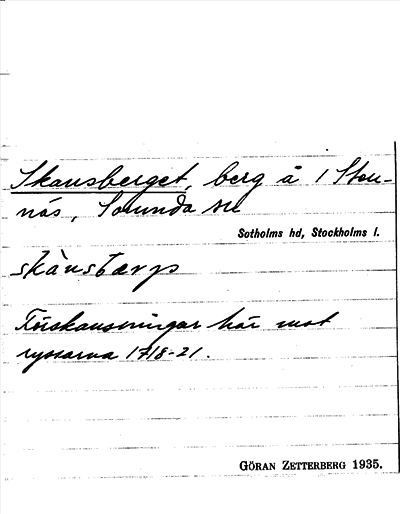 Skansberget, berg å 1 Sten-
näs, Sorunda sn
Sotholms hd, Stockholms l.
skànsbærjs
Förskansningar här mot
ryssarna 1718-21.
GÖRAN ZETTERBERG 1935.